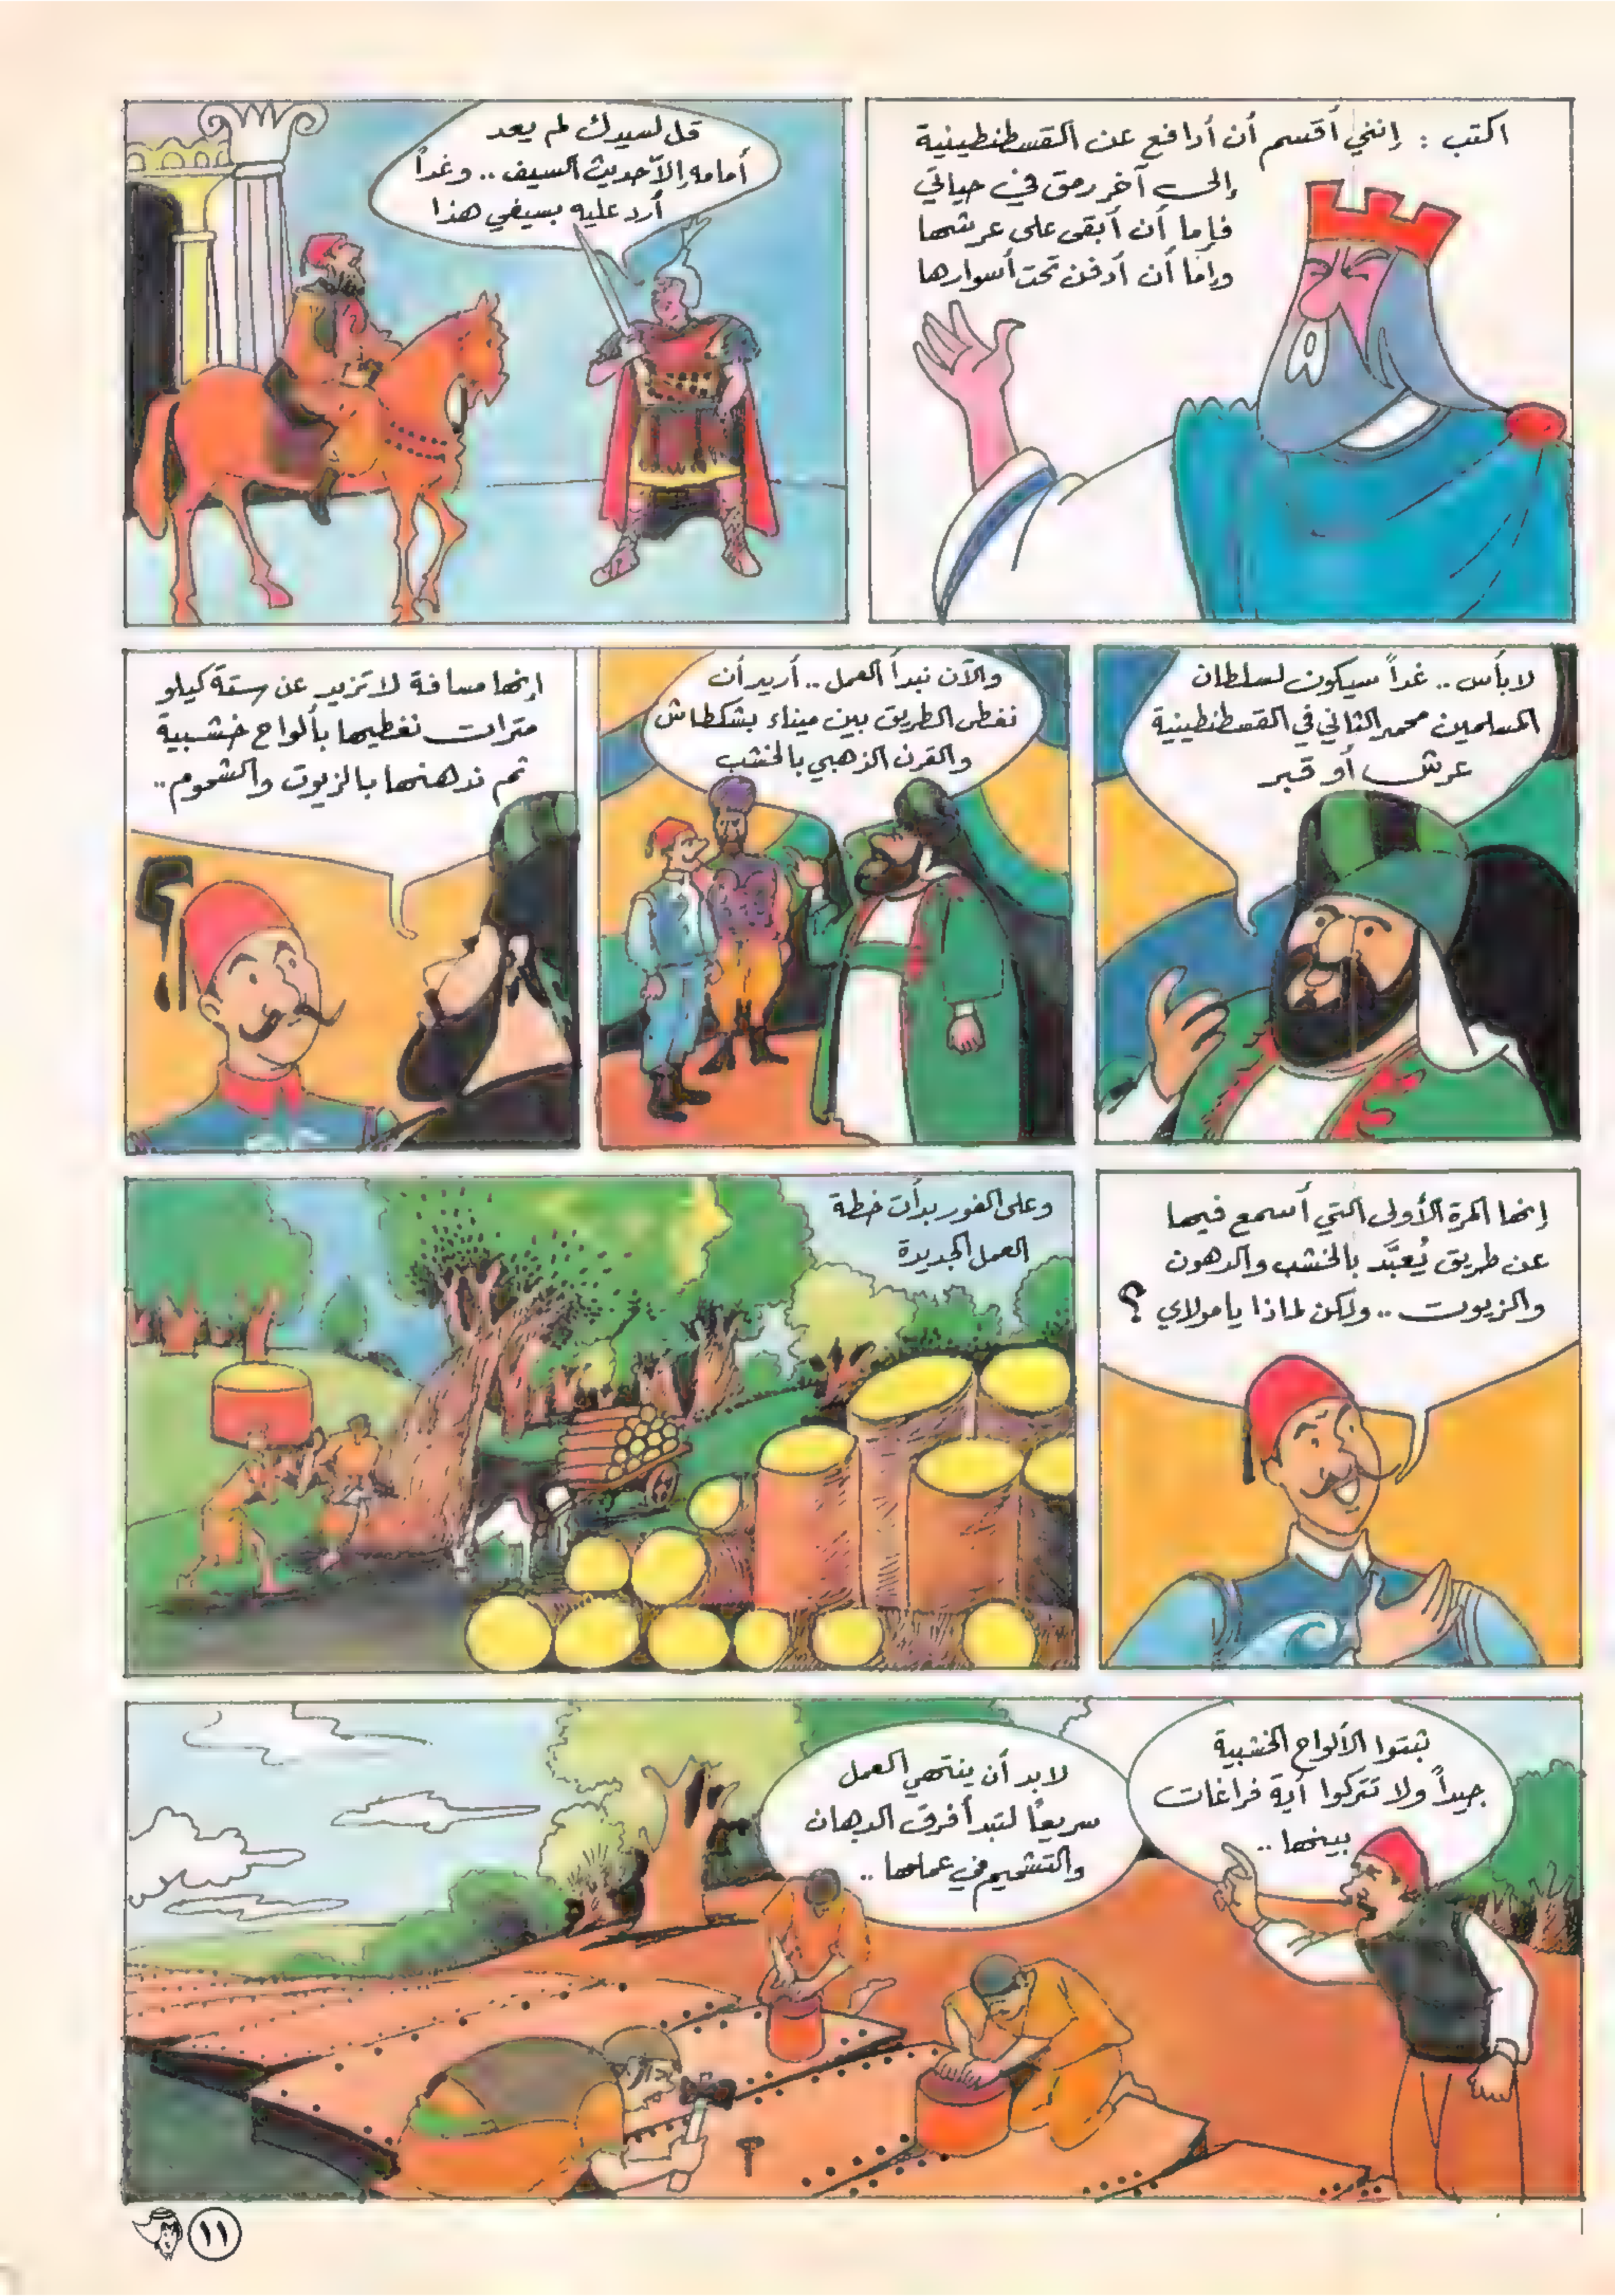 اكتب : إنني أقسم أن أدافع عن القسطنطينية
إلى آخر رمق في حياتي
فإما أن أبقى على عرشها
وإما أن أدفن تحت أسوارها
قل لسيدك لم يعد
أمامه إلا حديث السيف .. وغداً
أرد عليه بسيفي هذا
لا بأس .. غداً سيكون لسلطان
المسلمين محمد الثاني في القسطنطينية
عرش أو قبر
والآن نبدأ العمل .. أريد أن
نغطي الطريق بين ميناء بشكطاش
والقرن الذهبي بالخشب
إنها مسافة لا تزيد عن ستة كيلو
مترات نغطيها بألواح خشبية
ثم ندهنها بالزيوت والشحوم ..
إنها المرة الأولى التي أسمع فيها
عن طريق يُعبَّد بالخشب والدهون
والزيوت .. ولكن لماذا يا مولاي ؟
وعلى الفور بدأت خطة
العمل الجديدة
ثبتوا الألواح الخشبية
جيداً ولا تتركوا أية فراغات
بينها ..
لا بد أن ينتهي العمل
سريعاً لتبدأ فرق الدهان
والتشحيم في عملها ..
١١